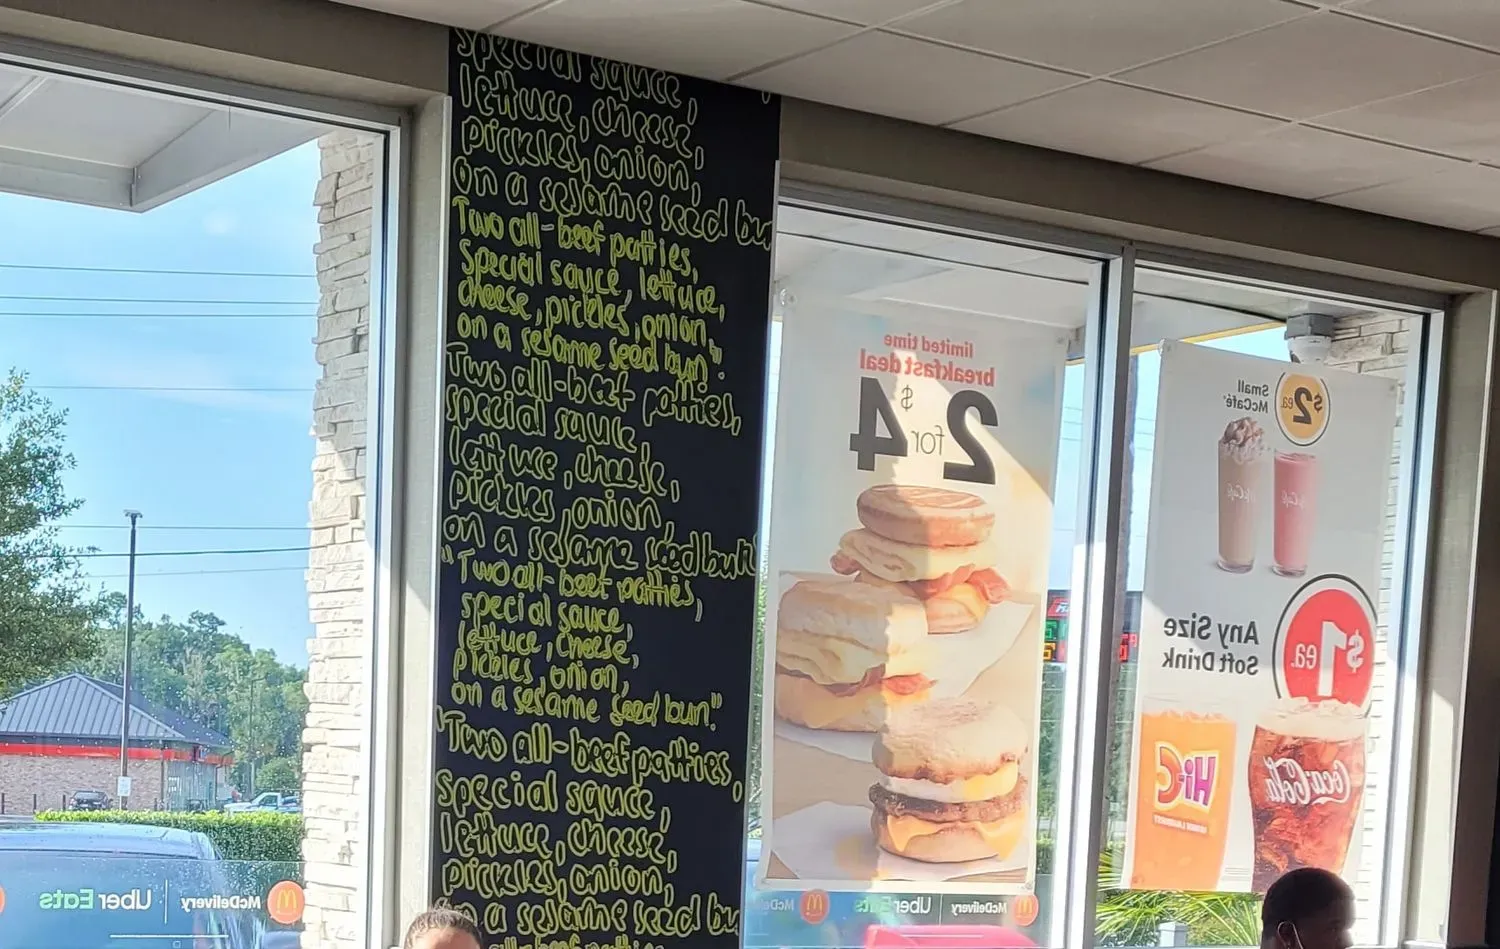 special sauce,
lettuce, cheese,
pickles, onion,
on a sesame seed bun
Two all-beef patties,
special sauce, lettuce,
cheese, pickles, onion,
on a sesame seed bun".
Two all-beef patties,
special sauce
lettuce, cheese,
pickles, onion,
on a sesame seed bun"
"Two all-beef patties,
special sauce,
lettuce, cheese,
pickles, onion,
on a sesame seed bun."
"Two all-beef patties,
special sauce,
lettuce, cheese,
pickles, onion,
on a sesame seed bu
all-beef patties
limited time
breakfast deal
2 for $4
Small
McCafé
$2 ea.
McCafé
McCafé
Any Size
Soft Drink
$1 ea.
Hi-C
Coca-Cola
McDelivery
Uber Eats
McDelivery
Uber Eats
McD